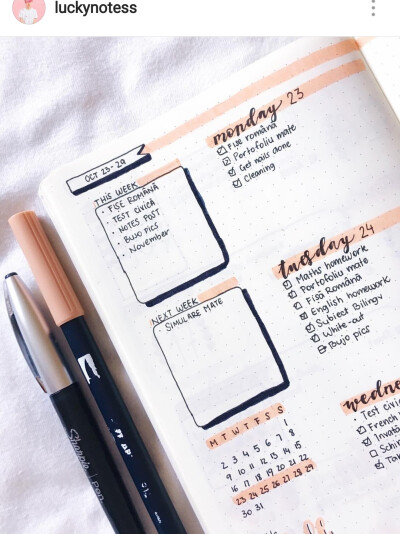 luckynotess
OCT 23-29
THIS WEEK
• FIȘE ROMÂNĂ
• TEST CIVICĂ
• NOTES POST
• Bujo pics
• November
NEXT WEEK
• SIMULARE MATE
M T W T F S S
1
2 3 4 5 6 7 8
9 10 11 12 13 14 15
16 17 18 19 20 21 22
23 24 25 26 27 28 29
30 31
monday 23
Fișe română
Portofoliu mate
Get nails done
Cleaning
tuesday 24
Maths homework
Portofoliu mate
Fișă Română
English homework
Subiect Bilingv
White-out
Bujo pics
wedne
Test civic
French
Sharpie Pen